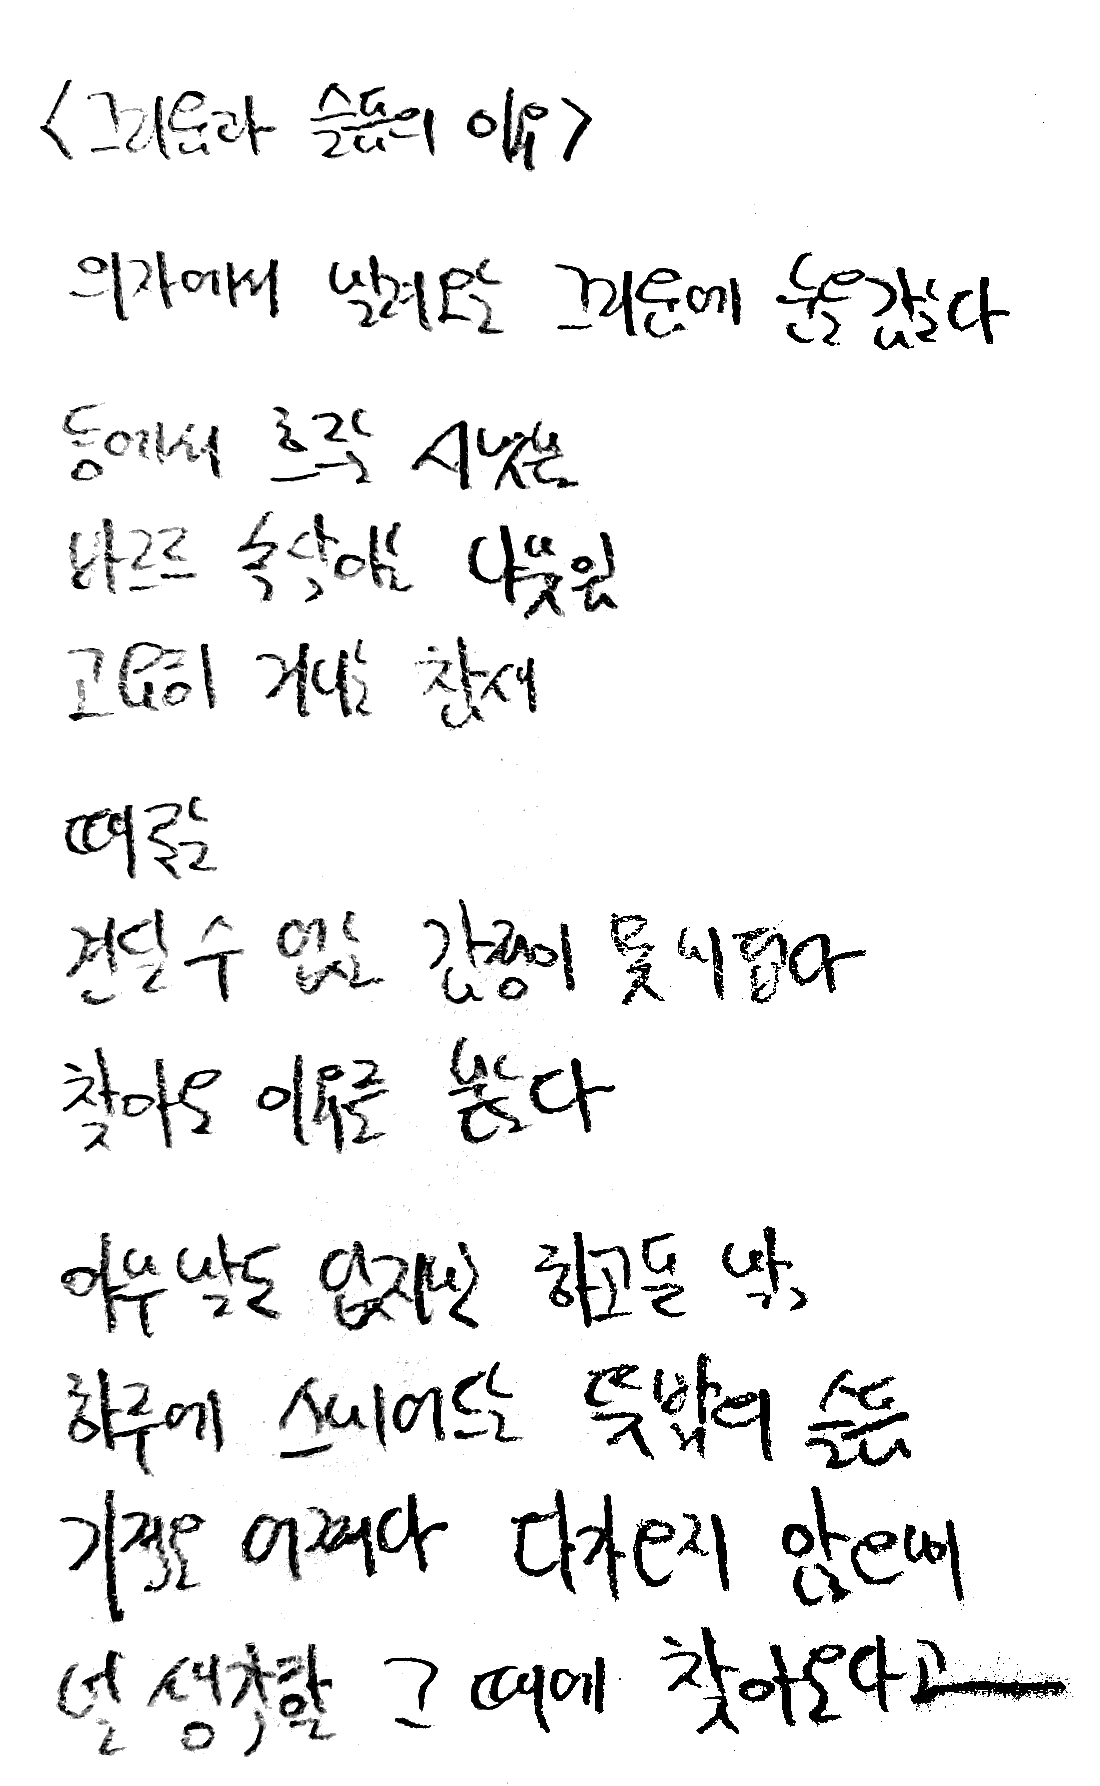 <그리움과 슬픔의 이유>
의자에서 밀려오는 그리움에 눈을감는다
등에서 흐르는 시냇물
바르르 속삭이는 나뭇잎
고요히 거니는 참새
때로는
견딜 수 없는 감정이 못미덥다
찾아온 이유를 묻는다
아무 말도 없지만 하고픈 말,
하루에 스며드는 뜻밖의 슬픔
기적은 어쩌다 다가온지 않은데
널 생각할 그 때에 찾아온다고